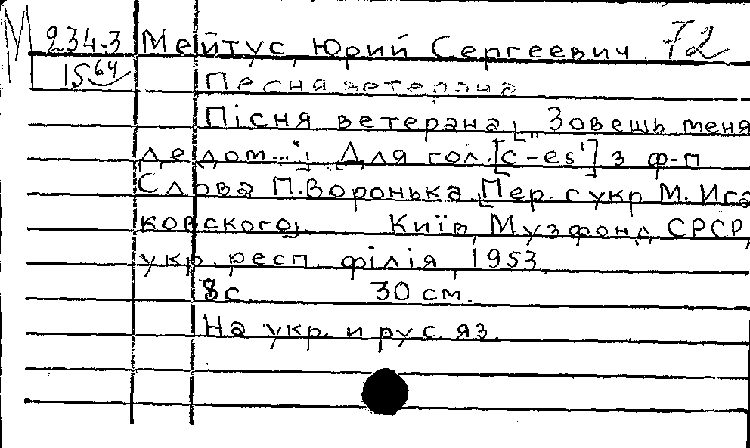 М 234-3 Мейтус, Юрий Сергеевич 72
1564 Песня ветерана
Пісня ветерана; „Зовешь меня
де дом..."; Для гол. [c-es'] з ф-п
Слова П. Воронька, Пер. с укр. М. Иса
ковского, Київ, Музфонд СРСР,
укр. респ. філія, 1953.
8с. 30 см.
На укр. и рус. яз.